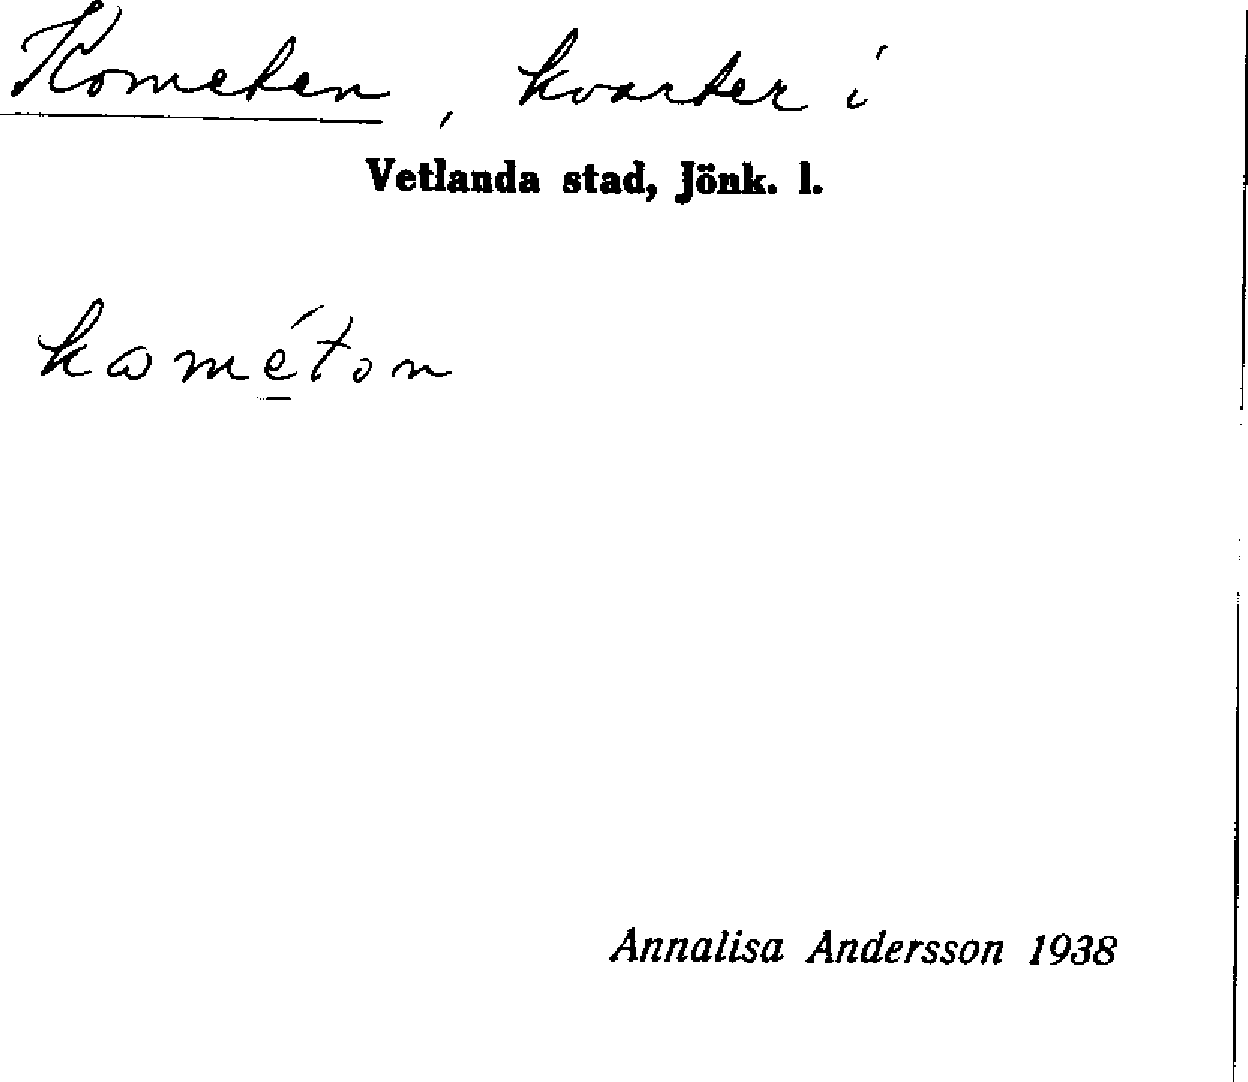 Kometen, kvarter i
Vetlanda stad, Jönk. l.
kaméton
Annalisa Andersson 1938